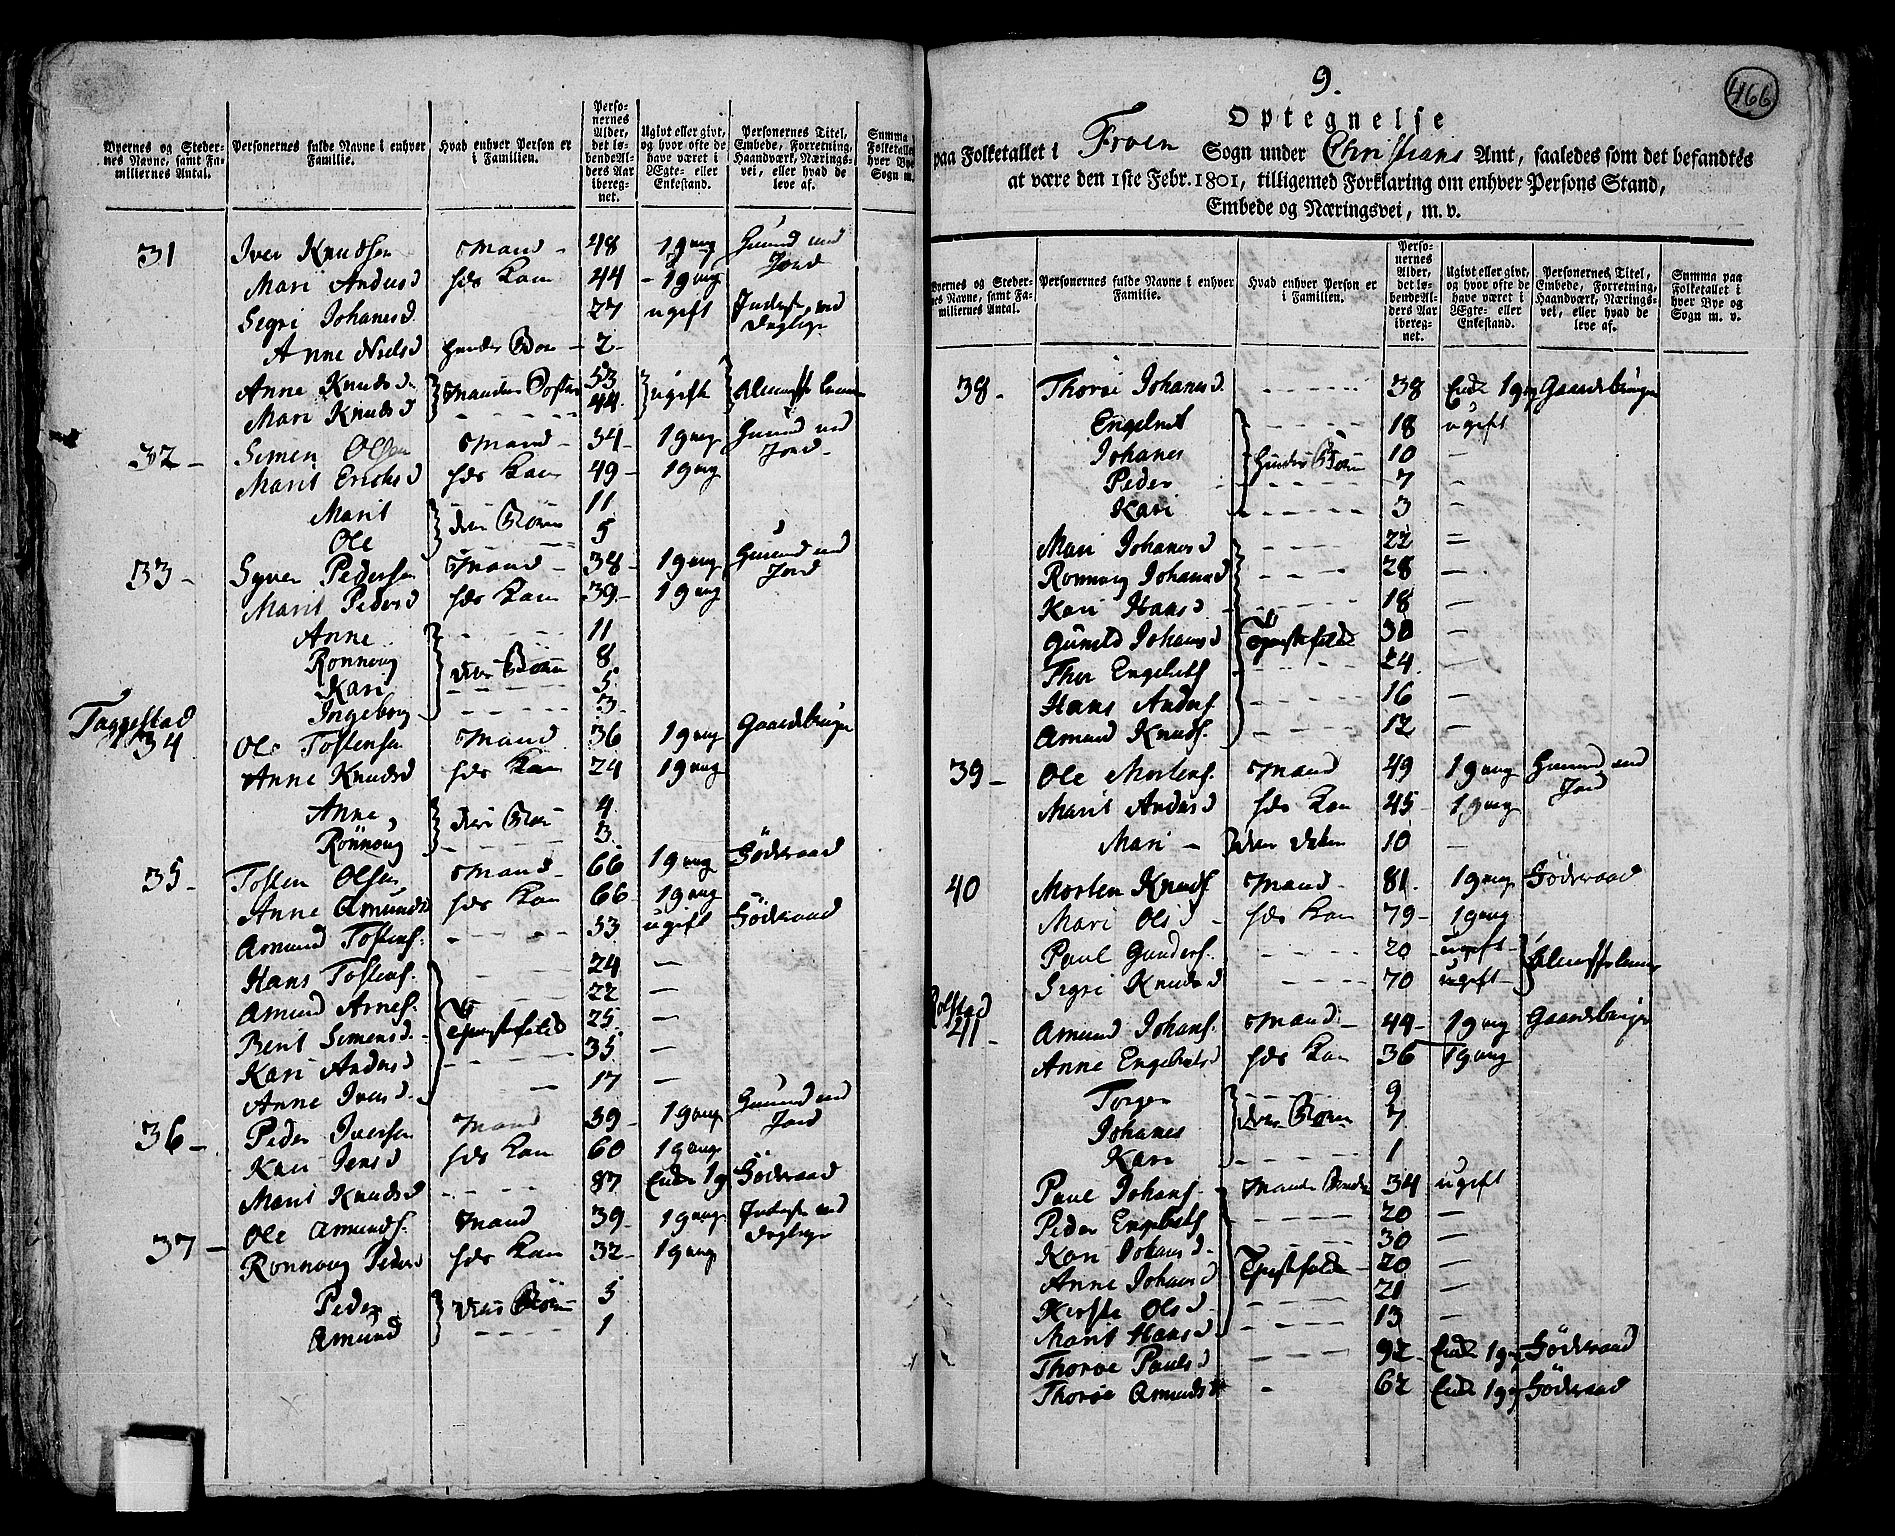 Byernes og Stedernes Navne, samt Familiernes Antal.
Personernes fulde Navne i enhver Familie.
Hvad enhver Person er i Familien.
Personernes Alder, det løbende Alders Aar iberegnet.
Ugivt eller givt, og hvor ofte de have været i Ægte- eller Enkestand.
Personernes Titel, Embede, Forretning, Haandværk, Næringsvei, eller hvad de leve af.
Summa
Folketallet
hver Bye
Sogn m.
31 Iver Knudsen Mand - 48 1 gang Huusmd med Jord
Mari Andersd hds Kone 44 - 1 gang
Segri Johanesd 27 ugift Inderst, ved Dagleje
Anne Nielsd hendes Barn - 2 -
Anne Knudsd } Mandens Søster 53 } ugift } Almisse Lem
Mari Knudsd 44
32 - Simen Olsen Mand - 34 - 1 gang Huusmd med Jord -
Marit Erichsd hds Kone 49 - 1 gang
Marit } deres Børn 11
Ole 5
33 - Syver Pedersen Mand - 38 - 1 gang Huusmd med Jord
Marit Pedersd hds Kone 39 - 1 gang
Anne } deres Børn 11
Ronnoug 8
Kari 5
Ingeborg 3
Taggestad
34 Ole Tostensen Mand 36 1 gang Gaardbruger
Anne Knudsd hds Kone 24 1 gang
Anne } deres Børn 4
Rönnoug 3
35 - Tosten Olsen Mand - 66 1 gang Föderaad
Anne Amundsd hds Kone 66 - 1 gang
Amund Tostens. 33 ugift Föderaad
Hans Tostens. 24 -
Amund Arnes. 22 -
Berit Simensd. } Tjenistefolk 25 -
Kari Andersd 35 -
Anne Iversd. 17 -
36 - Peder Iversen Mand 39 - 1 gang Huusmd med Jord
Kari Jensd hds Kone 60 1 gang
Marit Knudsd 87 Enke 1 g Föderaad
37 - Ole Amunds. Mand 39 - 1 gang Inderst ved Dagleje
Ronnoug Pedersd hds Kone 32 - 1 gang
Peder } deres Børn 3
Amund 1
9.
466
Optegnelse
paa Folketallet i Froen Sogn under Christians Amt, saaledes som det befandtes
at være den 1ste Febr. 1801, tilligemed Forklaring om enhver Persons Stand,
Embede og Næringsvei, m. v.
Byernes og Stedernes Navne, samt Familiernes Antal.
Personernes fulde Navne i enhver Familie.
Hvad enhver Person er i Familien.
Personernes Alder, det løbende Alders Aar iberegnet.
Ugivt eller givt, og hvor ofte de have været i Ægte- eller Enkestand.
Personernes Titel, Embede, Forretning, Haandværk, Næringsvei, eller hvad de leve af.
Summa paa Folketallet i hver Bye og Sogn m. v.
38 - Thoroe Johanesd 38 Enke 1 g Gaardbruger
Engebret 18 ugift
Johanes } hendes Børn 10 -
Peder 7 -
Kari 3 -
Mari Johanesd 22 =
Ronnoug Johanesd 28 -
Kari Hansd 18 -
Gunild Johanesd } Tjenistefolk 30 -
Thor Engebrets. 24 -
Hans Anders. 16 -
Amund Knuds. 12 -
39 - Ole Mortens. Mand 49 1 gang Huusmd med Jord
Marit Andersd hds Kone 45 - 1 gang
Mari - } deres datter 10 -
40 Morten Knuds. Mand - 81. 1 gang Föderaad
Mari Olsd hds Kone 79 - 1 gang
Paul Gunders. 20 ugift } Almisselem
Segri Knudsd 70 ugift
Rolstad
41 - Amund Johans. Mand - 44 - 1 gang Gaardbruger
Anne Engebretsd hds Kone 36 1 gang
Torger } deres Børn 9
Johanes 7
Kari 1
Paul Johans. Mandens Broder 34 ugift
Peder Engebrets. 20 -
Kari Johansd. 30 -
Anne Johansd } Tjenistefolk 20 -
Kersti Olsd. 21 -
Marit Hansd 13 -
Thoroe Paulsd 92 - Enke 1 g Föderaad
Thoroe Amundsd 62 Enke 1 g Föderaad